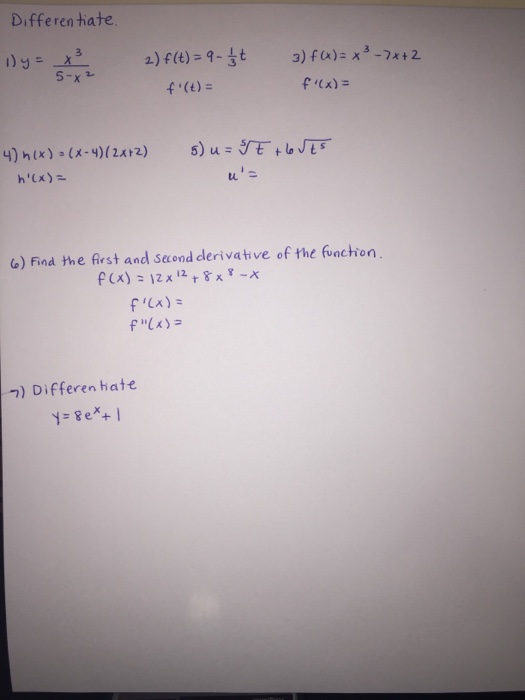 Differentiate.
1) y = x³/(5-x²)
2) f(t) = 9 - 1/3 t
3) f(x) = x³ - 7x + 2
f'(t) =
f'(x) =
4) h(x) = (x-4)(2x+2)
5) u = ⁵√t + 6√t⁵
h'(x) =
u' =
6) Find the first and second derivative of the function.
f(x) = 12x¹² + 8x⁸ - x
f'(x) =
f"(x) =
7) Differentiate
y = 8eˣ + 1